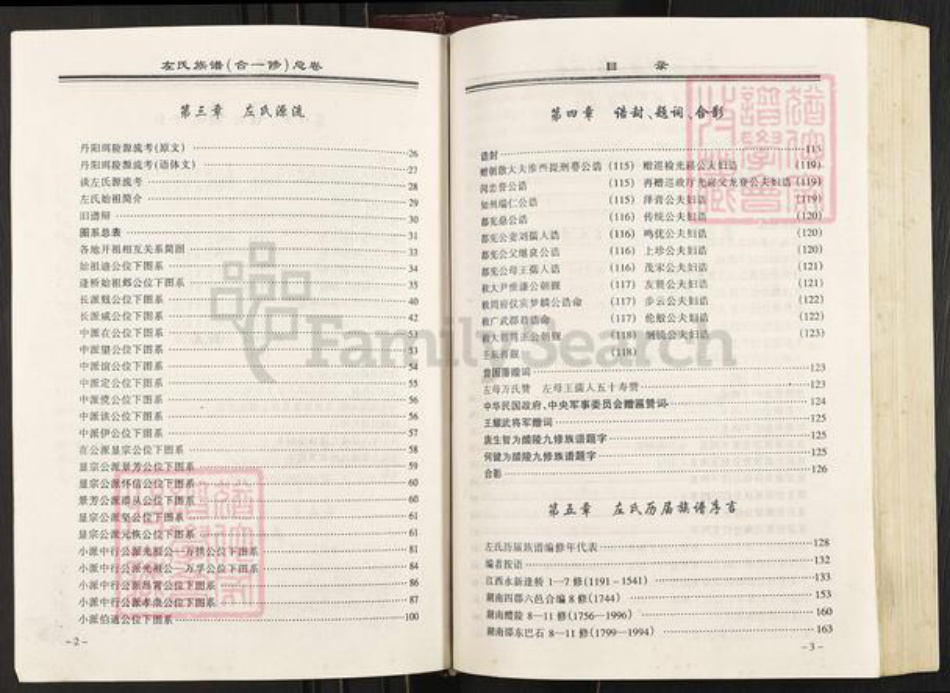 左氏族谱(合一修)总卷
第三章 左氏源流
丹阳珥陵源流考(原文) 26
丹阳珥陵源流考(语体文) 27
谈左氏源流考 28
左氏始祖简介 29
旧谱辩 30
图系总表 31
各地开祖相互关系简图 33
始祖迪公位下图系 34
逢桥始祖郯公位下图系 35
长派戬公位下图系 40
长派咸公位下图系 42
中派在公位下图系 53
中派望公位下图系 53
中派谊公位下图系 54
中派定公位下图系 55
中派傥公位下图系 56
中派该公位下图系 56
中派伊公位下图系 57
在公派显宗公位下图系 58
显宗公派景芳公位下图系 59
显宗公派怀信公位下图系 60
景芳公派 公位下图系 60
显宗公派坚公位下图系 61
显宗公派元恢公位下图系 61
小派中行公派光根公—万拱公位下图系 81
小派中行公派光根公—万孚公位下图系 82
小派中行公派昂霄公位下图系 86
小派中行公派孝崇公位下图系 87
小派伯通公位下图系 100
-2-
目 录
第四章 诰封、题词、合影
诰封 115
赠朝散大夫淮西提刑眷公诰 (115) 赠巡检光 公夫妇诰 (119)
闵忠眷公诰 (115) 再赠巡政厅光 父龙眷公夫妇诰 (119)
知州瑞仁公诰 (115) 泽胥公夫妇诰 (119)
都宪鼎公诰 (116) 传统公夫妇诰 (120)
都宪公妻刘孺人诰 (116) 鸣优公夫妇诰 (120)
都宪公父继良公诰 (116) 上珍公夫妇诰 (120)
都宪公母王孺人诰 (116) 茂宋公夫妇诰 (121)
秋大尹世谦公朝觐 (117) 友贤公夫妇诰 (121)
敕同府仪宾梦麟公诰命 (117) 步云公夫妇诰 (122)
敕广武郡君诰命 (117) 伦般公夫妇诰 (122)
敕大 周正公朝觐 (118) 侧镜公夫妇诰 (123)
壬辰再觐 (118)
贵国藩赠词 123
左母万氏赞 左母王孺人五十寿赞 123
中华民国政府、中央军事委员会赠匾赞词 124
王耀武将军赠词 125
唐生智为醴陵九修族谱题字 125
何键为醴陵九修族谱题字 125
合影 126
第五章 左氏历届族谱序言
左氏历届族谱编修年代表 128
编者按语 132
江西永新逢桥 1—7 修(1191-1541) 133
湖南四郡六邑合编 8 修(1744) 153
湖南醴陵 8—11 修(1756-1996) 160
湖南邵东巴石 8—11 修(1799-1994) 163
-3-
FamilySearch